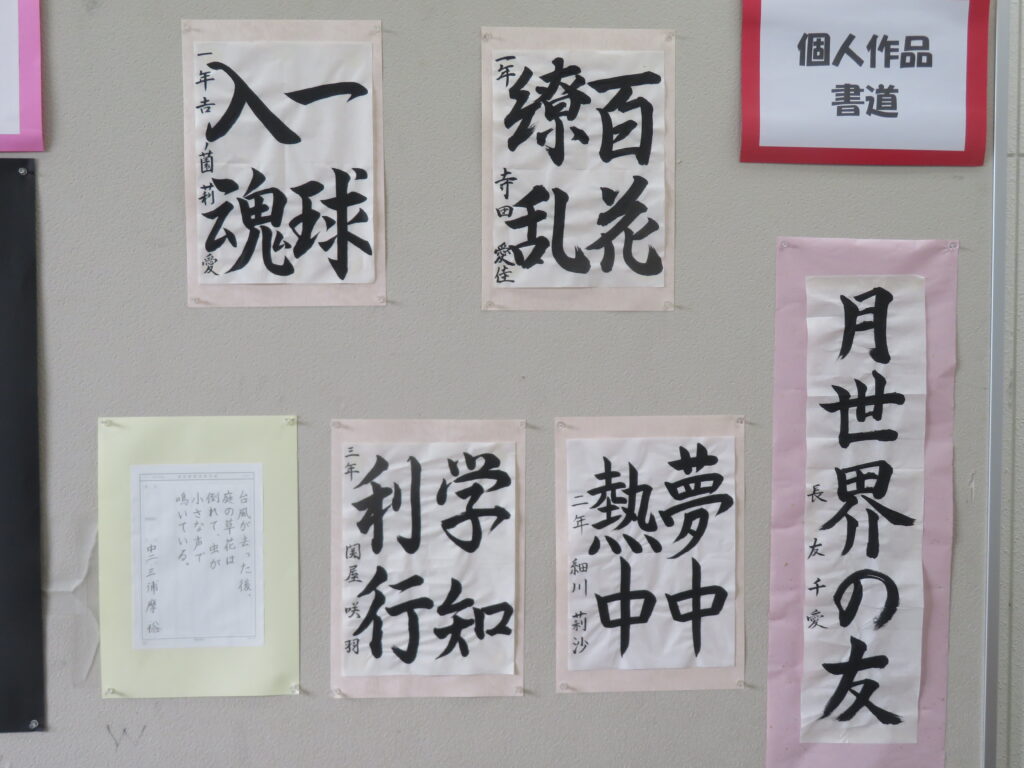 個人作品
書道
百花
繚乱
一年 寺田 愛佳
一球
入魂
一年 吉ノ薗 莉愛
月世界の友
長友千愛
夢中
熱中
二年 細川 莉沙
学知
利行
三年 関屋 咲羽
台風が去った後、
庭の草花は
倒れて、虫が
小さな声で
鳴いている。
中二 三浦摩